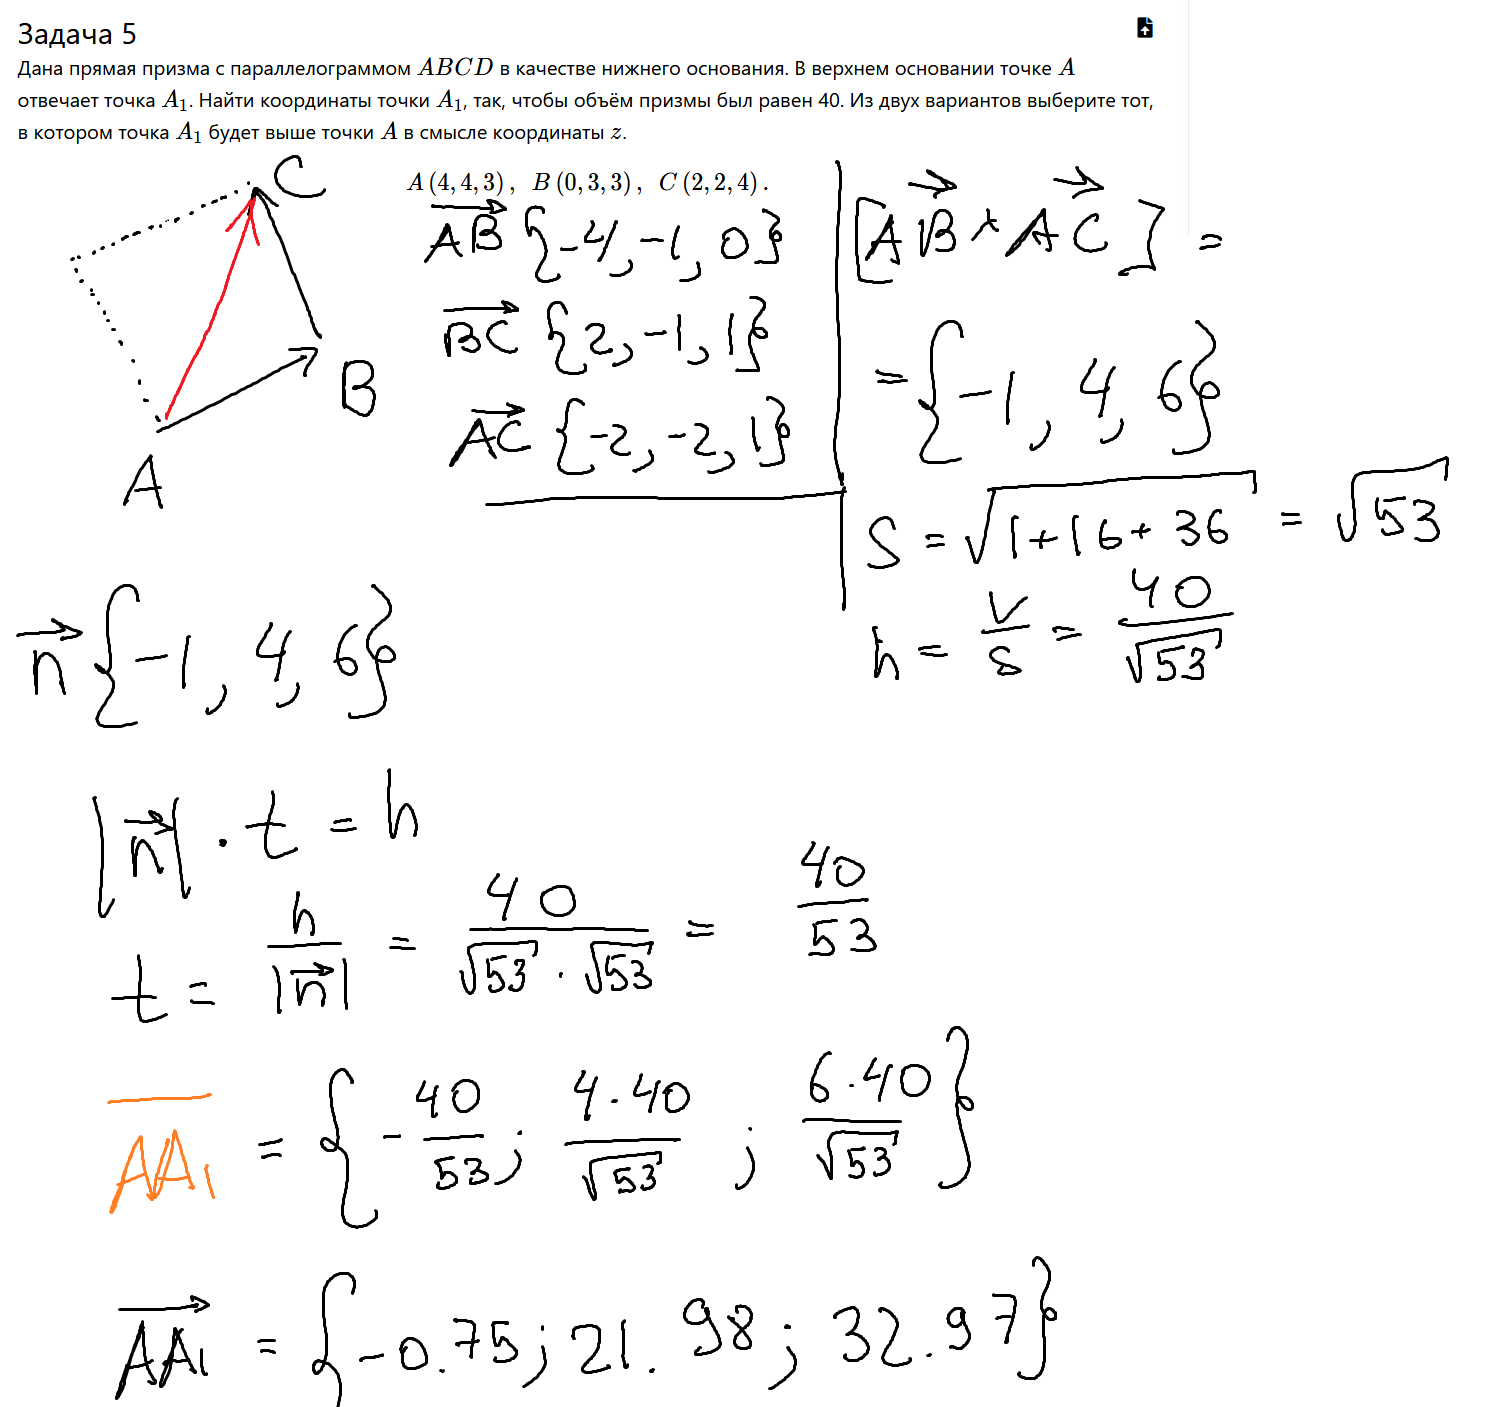 Задача 5
Дана прямая призма с параллелограммом ABCD в качестве нижнего основания. В верхнем основании точке A
отвечает точка A₁. Найти координаты точки A₁, так, чтобы объём призмы был равен 40. Из двух вариантов выберите тот,
в котором точка A₁ будет выше точки A в смысле координаты z.
A (4, 4, 3) ,  B (0, 3, 3) ,  C (2, 2, 4) .
C
B
A
AB {-4, -1, 0}
BC {2, -1, 1}
AC {-2, -2, 1}
[AB × AC] =
= {-1, 4, 6}
S = √(1+16+36) = √53
h = V/S = 40/√53
n {-1, 4, 6}
|n| · t = h
t = h/|n| = 40/(√53 · √53) = 40/53
AA₁ = {-40/53; 4·40/√53; 6·40/√53}
AA₁ = {-0.75; 21.98; 32.97}